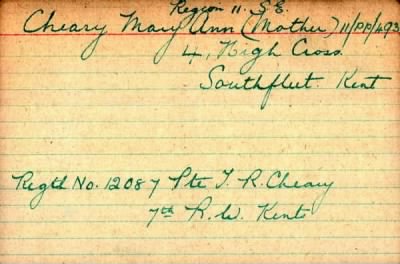 Region 11. S.E.
Cheary Mary Ann (Mother) 11/PP/493
4, High Cross
Southfleet. Kent
Regtl No. 12087 Pte T. R. Cheary
7th R. W. Kents